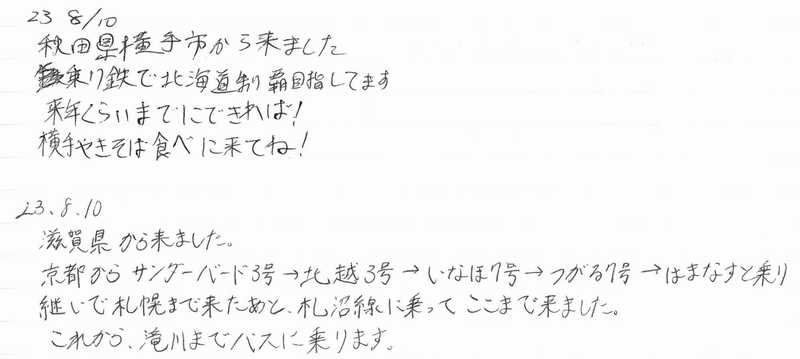 23 8/10
秋田県横手市から来ました
乗り鉄で北海道制覇目指してます
来年くらいまでにできれば!
横手やきそば食べに来てね!
23.8.10
滋賀県から来ました。
京都からサンダーバード3号→北越3号→いなほ7号→つがる7号→はまなすと乗り
継いで札幌まで来たあと、札沼線に乗ってここまで来ました。
これから、滝川までバスに乗ります。